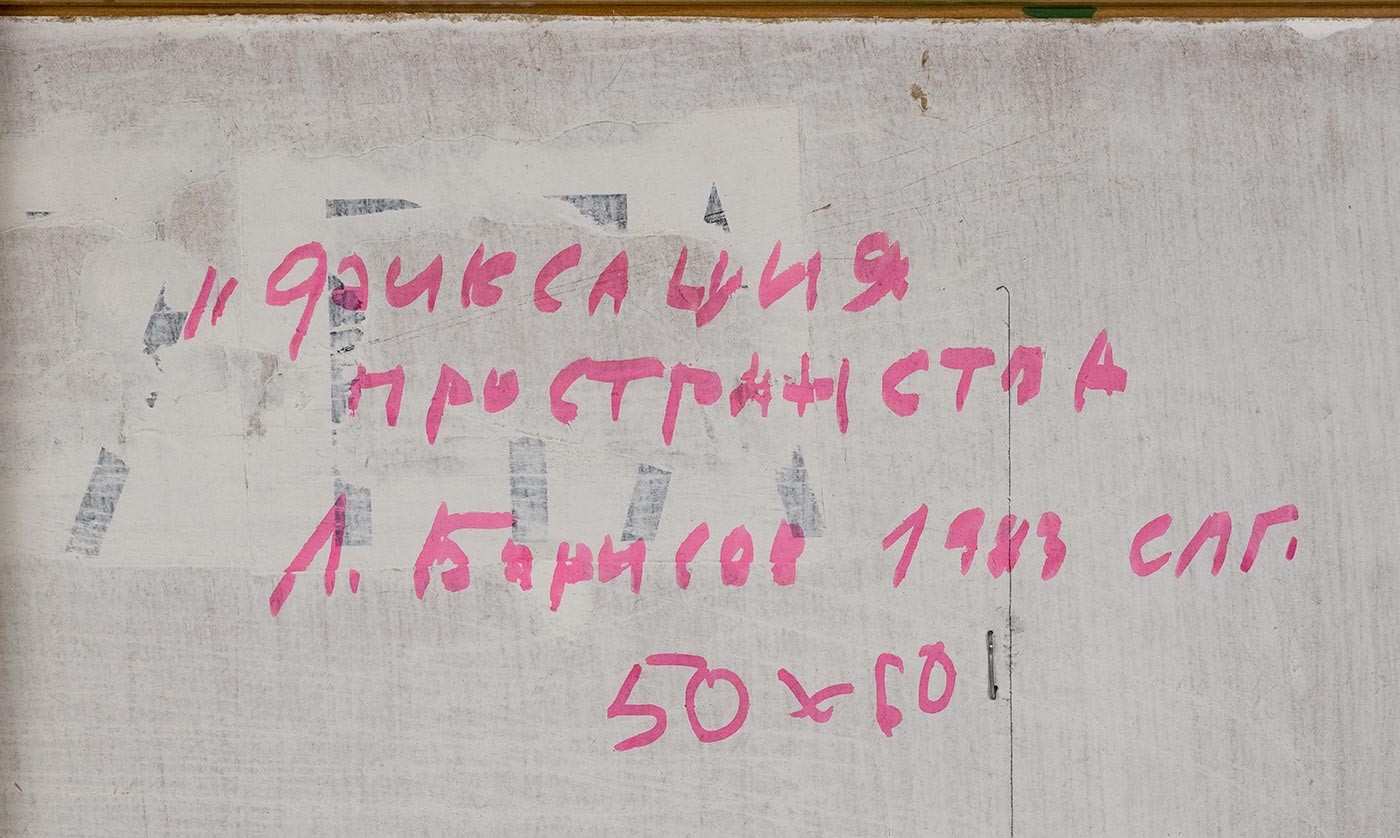 "Фиксация
пространства
Л. Борисов 1983 СПГ.
50 x 60